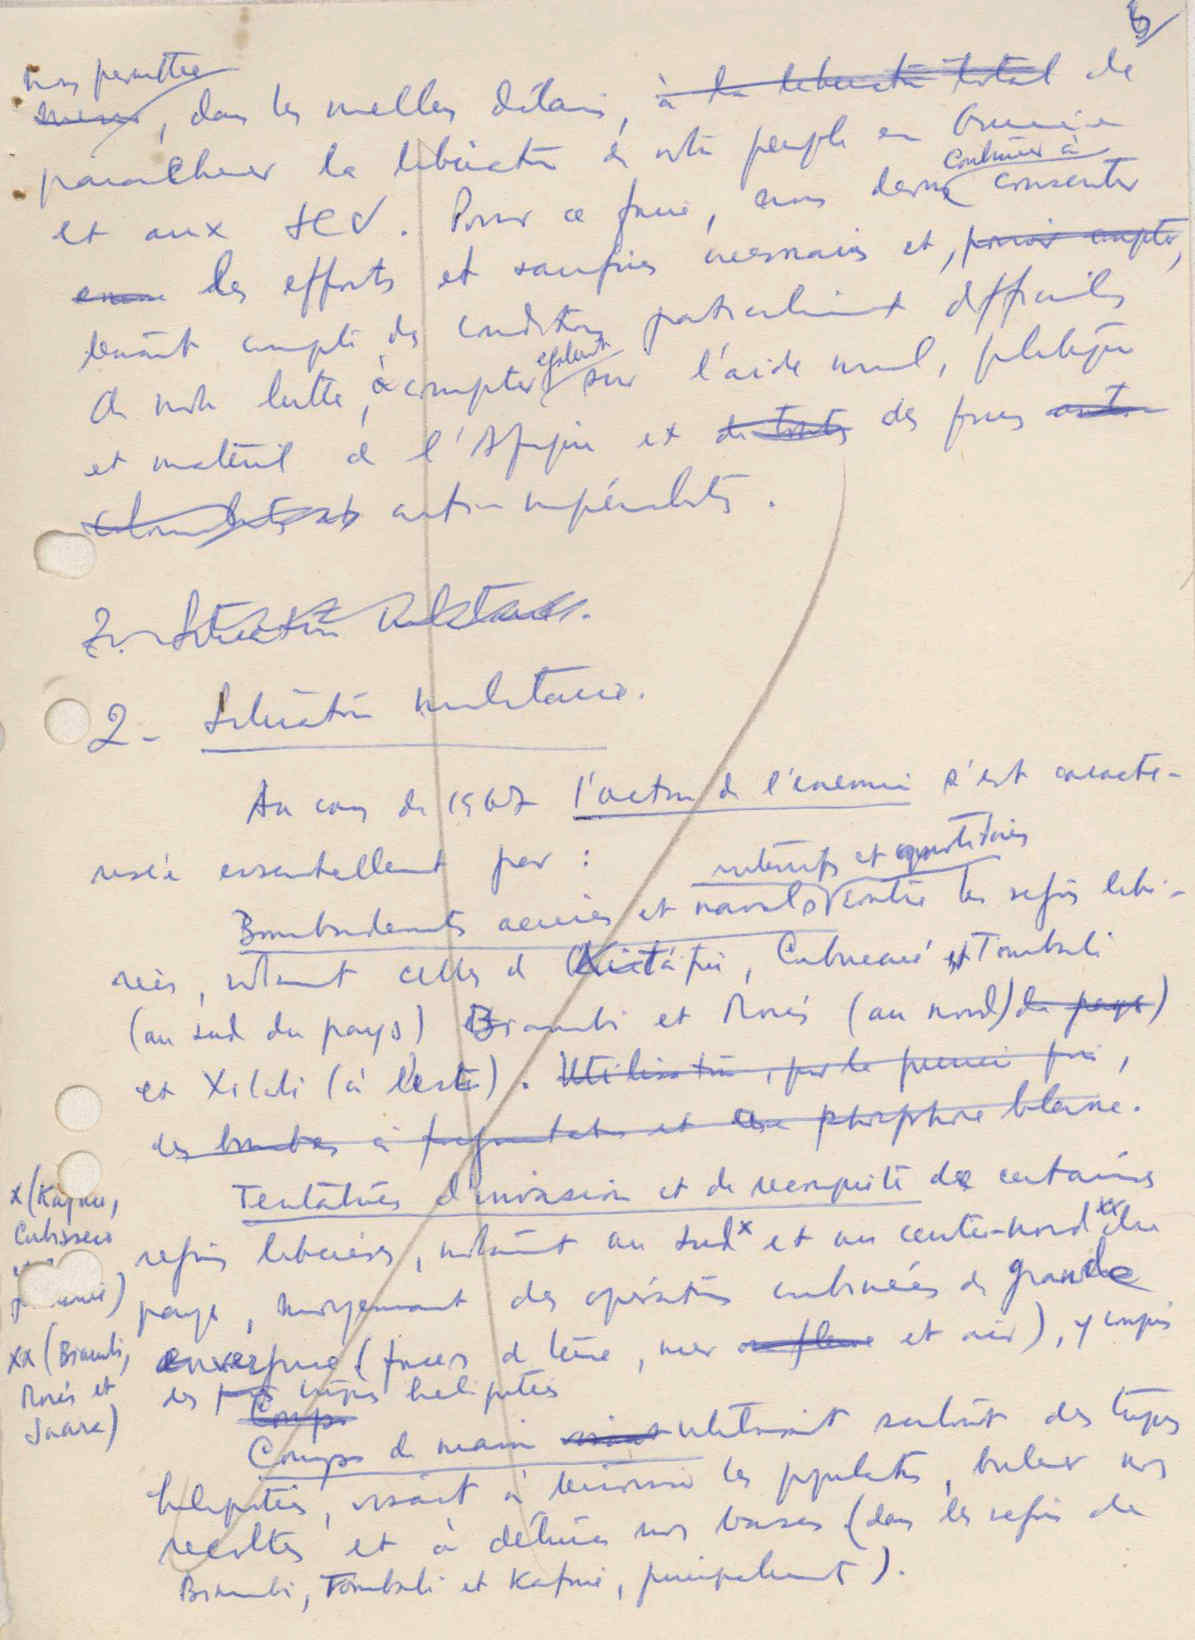 6
nous permettre
, dans les meilleurs délais, à la libération totale de
parachever la libération de notre peuple en Guinée
continuer à
et aux ICV. Pour ce faire, nous devons consentir
encore les efforts et sacrifices nécessaires et, pouvoir compter,
tenant compte des conditions particulièrement difficiles
également
de notre lutte, à compter sur l'aide morale, politique
et matériel de l'Afrique et de toutes des forces anti-
colonialistes et anti-impérialistes.
2.- Situation militaire.
2- Situation militaire.
Au cours de 1967 l'action de l'ennemi s'est caracté-
risée essentiellement par :
intensifs et quotidiens
Bombardements aériens et navals contre les régions libé-
rées, notamment celles de Quitáfine, Cubucaré et Tombali
(au sud du pays) Biambi et Morés (au nord) du pays)
et Xitoli (à l'est). Utilisation, pour la première fois,
des bombes à fragmentation et au phosphore blanc.
Tentatives d'invasion et de reconquête de certaines
régions libérées, notamment au sud x et au centre-nord xx du
pays, moyennant des opérations combinées de grande
envergure (forces de terre, mer ou fleuve et air), y compris
des troupes héliportées
Coups
Coups de main utilisant surtout des troupes
héliportées, visant à terroriser les populations, brûler nos
récoltes et à détruire nos bases (dans les régions de
Biambi, Tombali et Kafine, principalement).
x (Kafine,
Cubisseco
xx (Biambi,
Morés et
Saara)